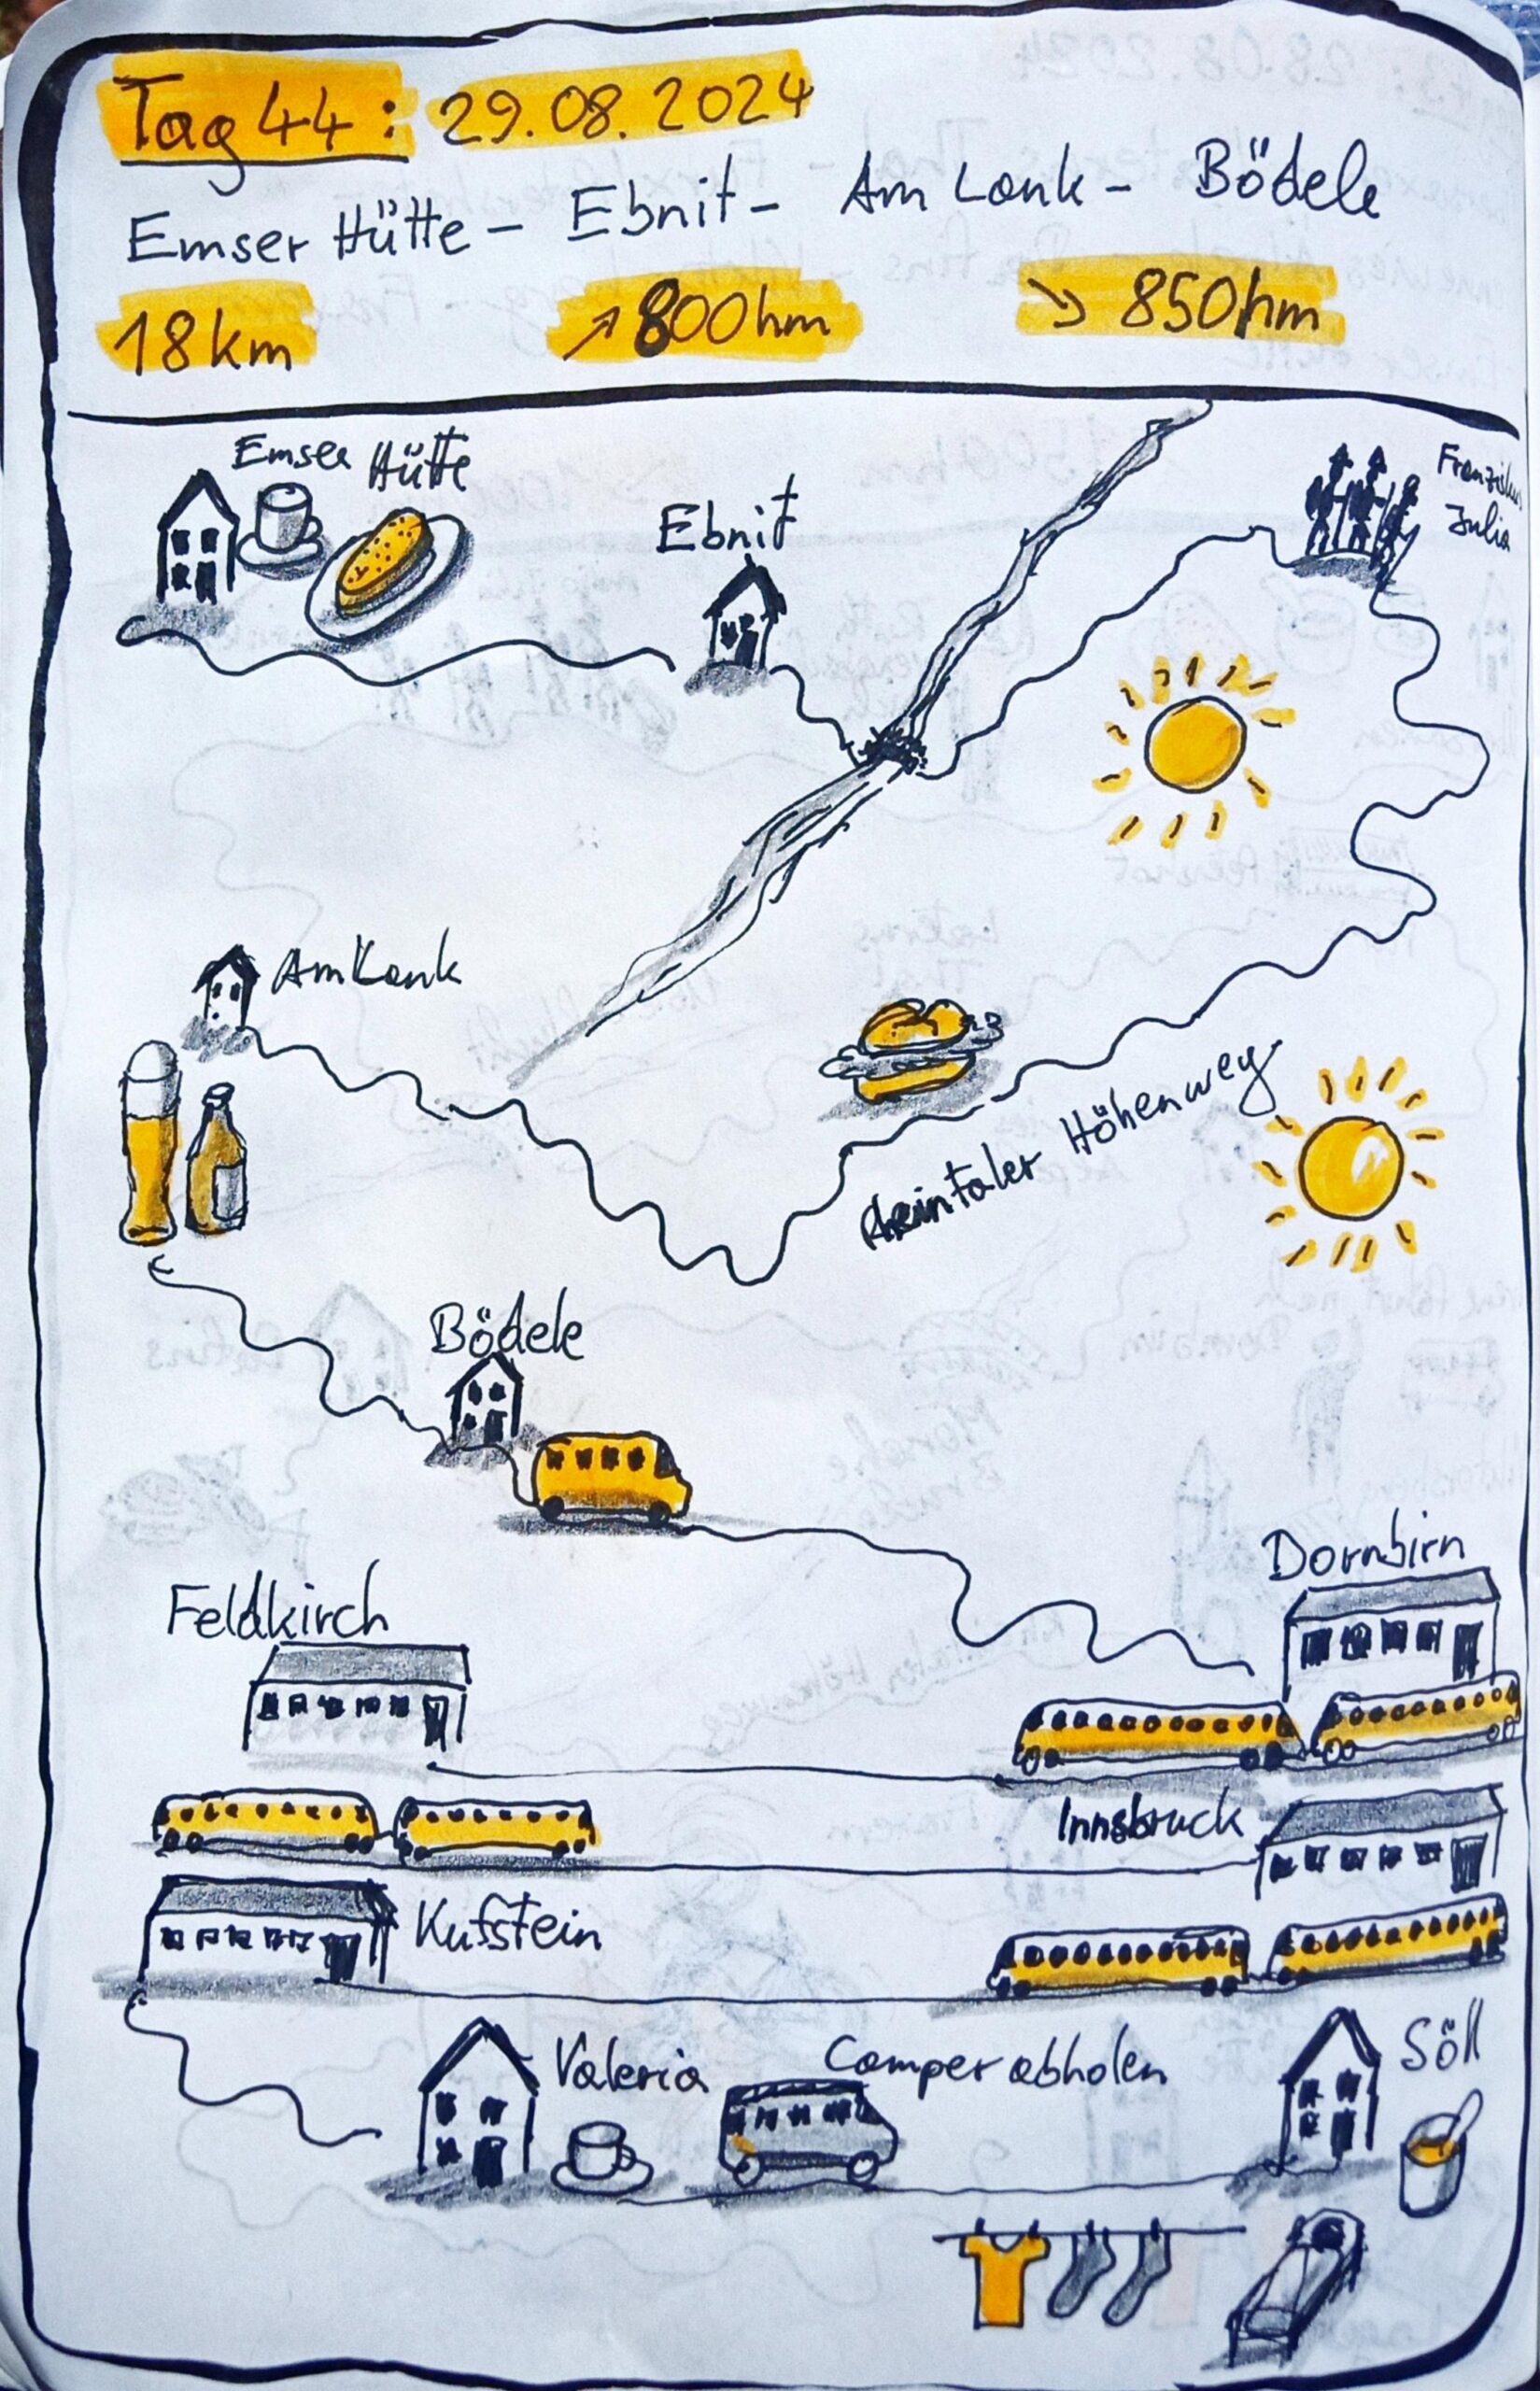 Tag 44: 29.08.2024
Emser Hütte - Ebnit - Am Lank - Bödele
18km ↗800hm ↘850hm
Emser Hütte
Ebnit
Julia
Am Lank
Rheintaler Höhenweg
Bödele
Dornbirn
Feldkirch
Innsbruck
Kufstein
Valeria
Camper abholen
Söll